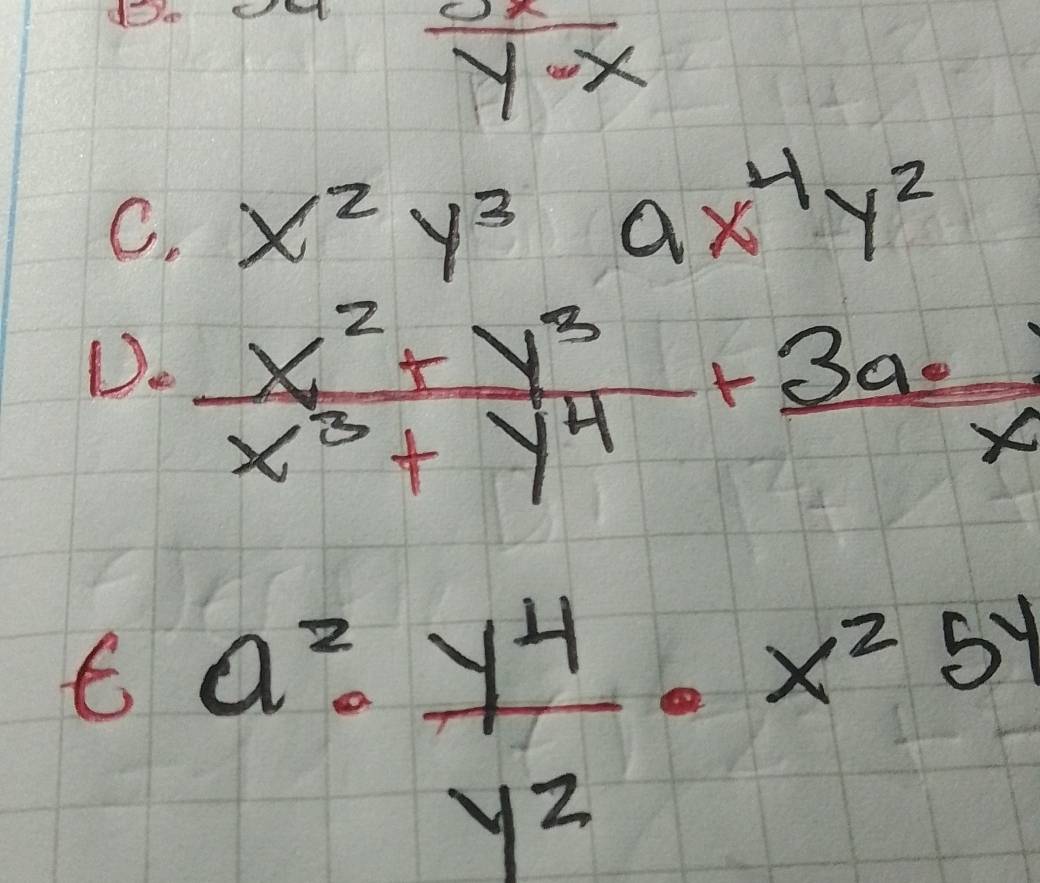 B. 3a
y · x
C. x² y³ a x⁴ y²
D. x² + y³ / x³ + y⁴ + 3a · / x
E a² · y⁴ / y² · x² 5y